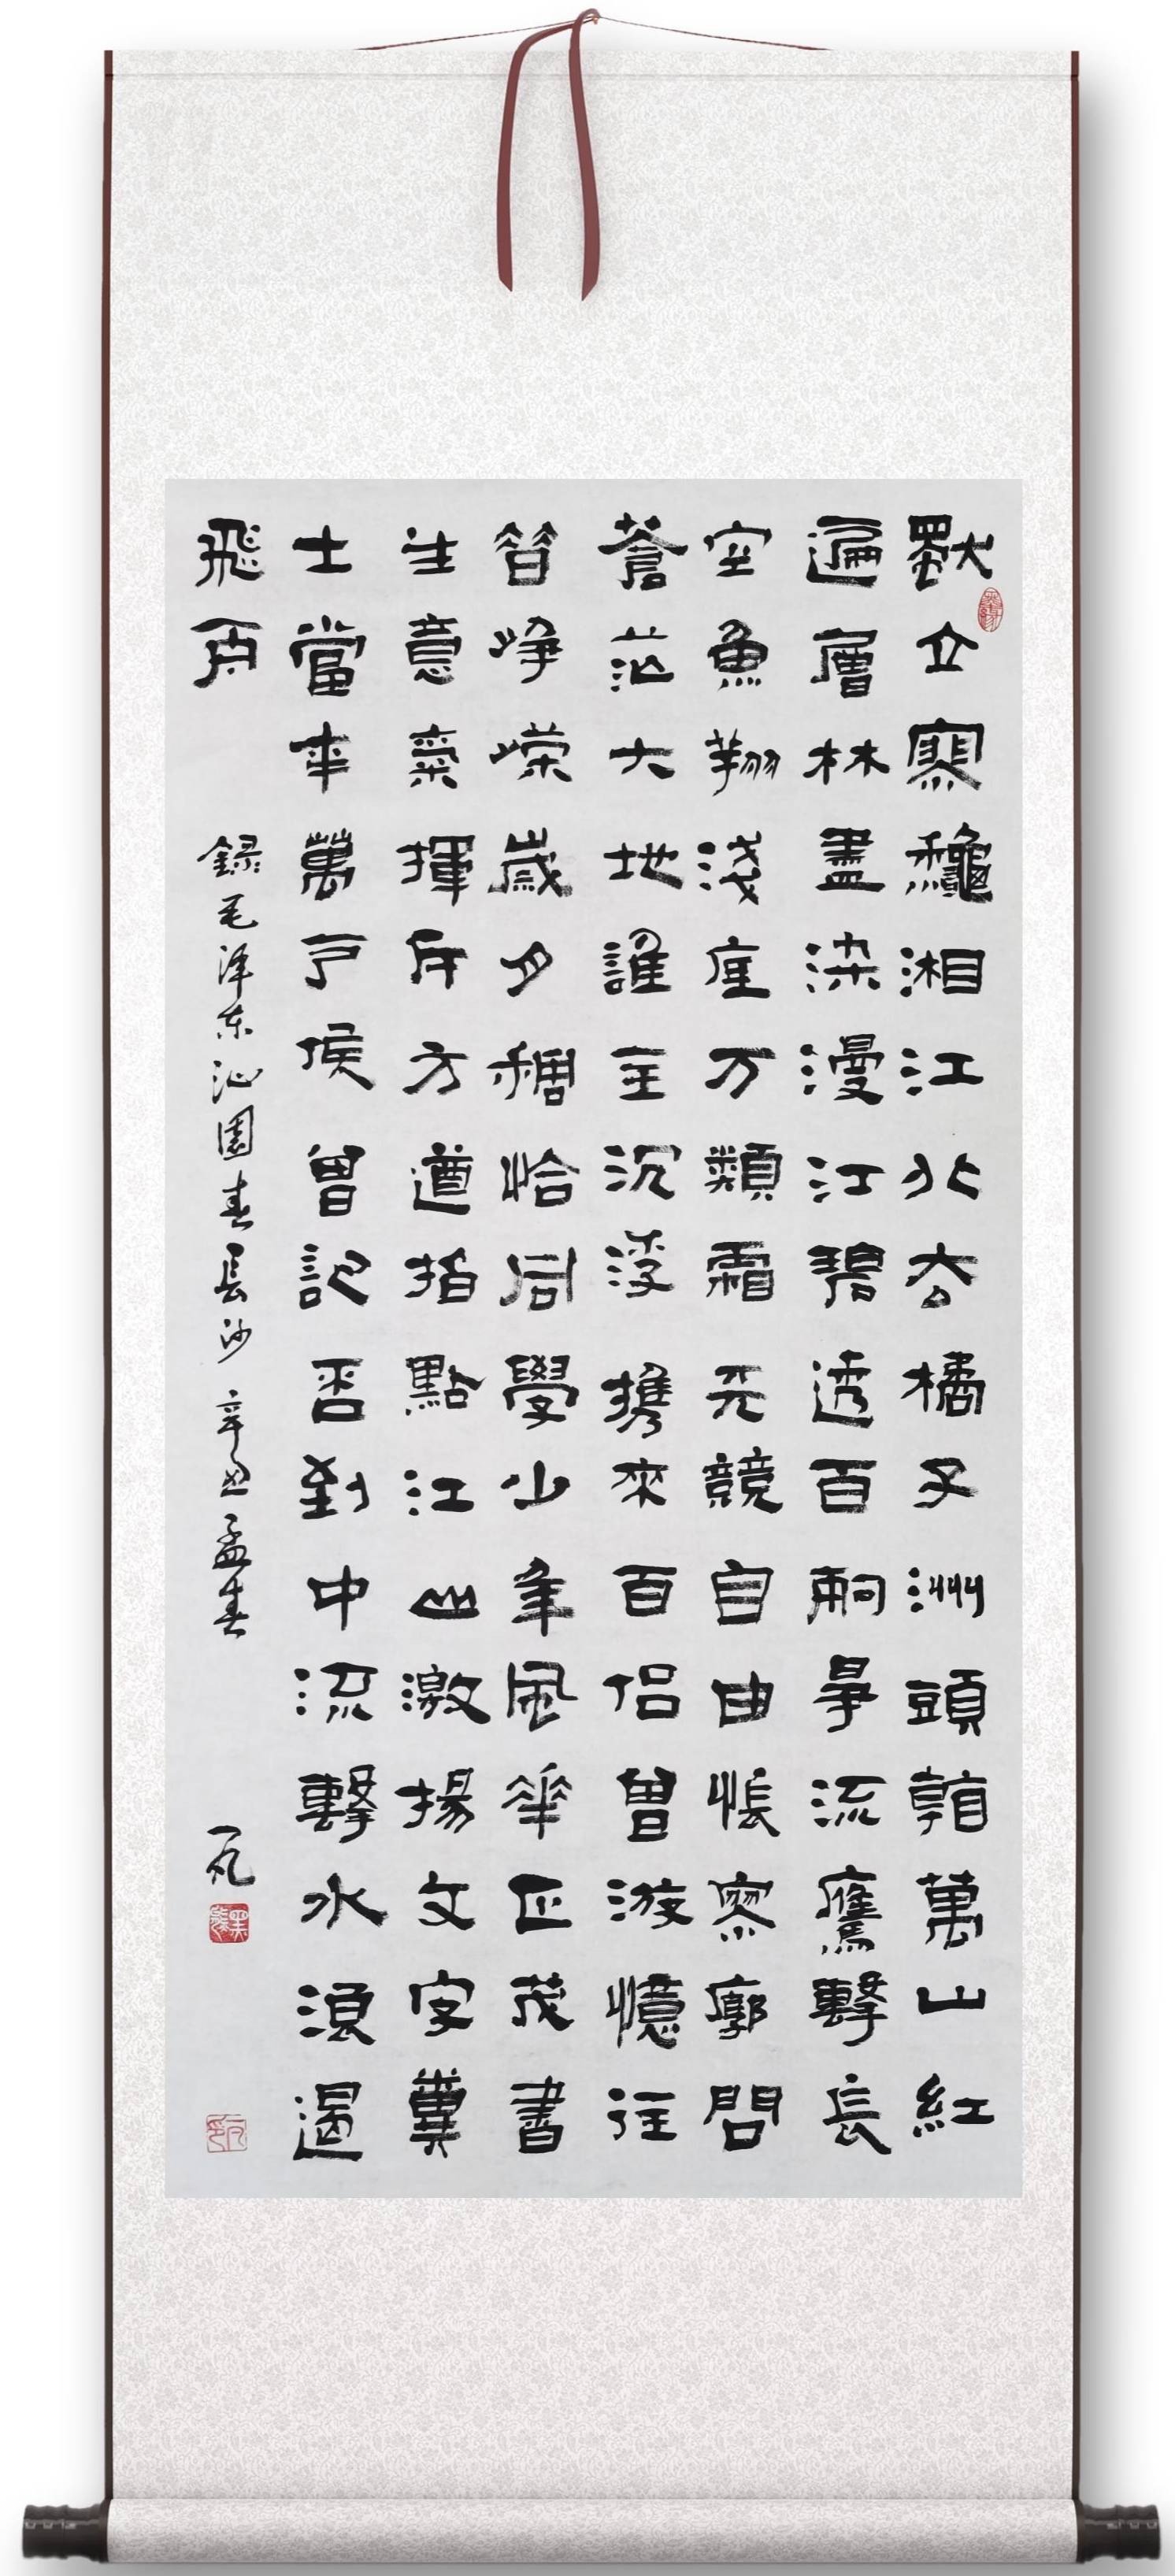 獨立寒穐湘江北去橘子洲頭看萬山紅
遍層林盡染漫江碧透百舸爭流鷹擊長
空魚翔淺底万類霜天競自由悵寥廓問
蒼茫大地誰主沉浮携來百侶曾游憶往
昔崢嶸歲月稠恰同學少年風華正茂書
生意氣揮斥方遒指點江山激揚文字糞
土當年萬户侯曾記否到中流擊水浪遏
飛舟 録毛泽东沁園春長沙 辛丑孟春 一凡